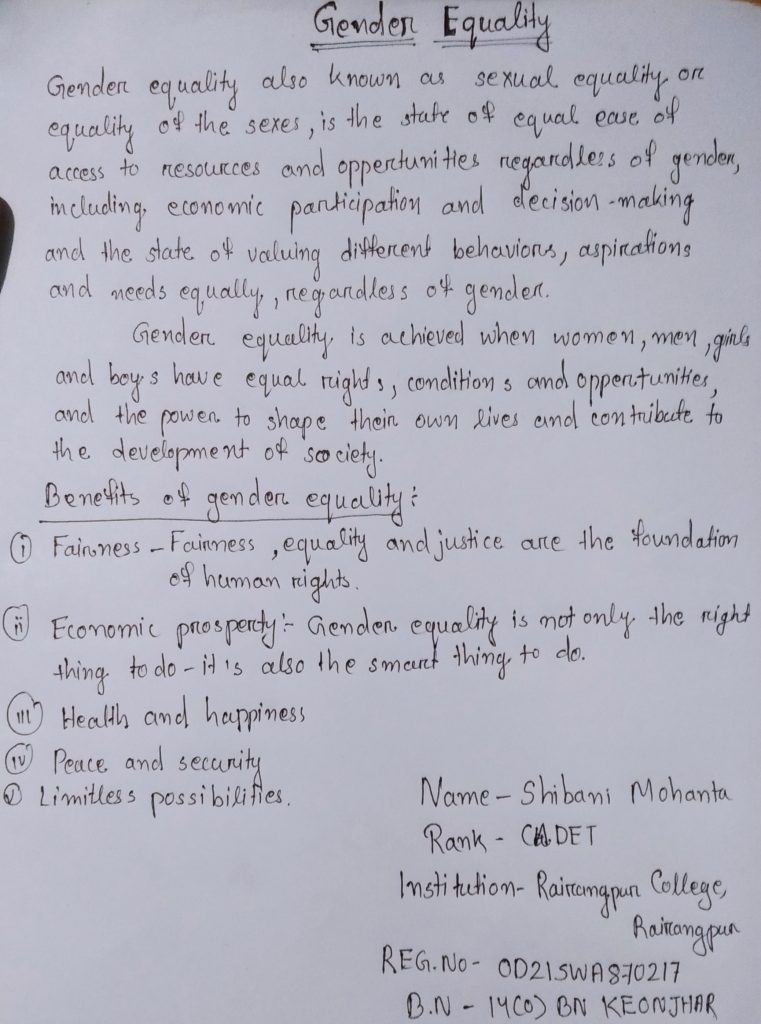 Gender Equality
Gender equality also known as sexual equality or
equality of the sexes, is the state of equal ease of
access to resources and oppertunities regardless of gender,
including economic participation and decision-making
and the state of valuing different behaviors, aspirations
and needs equally, regardless of gender.
Gender equality is achieved when women, men, girls
and boys have equal rights, conditions and oppertunities,
and the power to shape their own lives and contribute to
the development of society.
Benefits of gender equality:
(i) Fairness - Fairness, equality and justice are the foundation
of human rights.
(ii) Economic prosperity:- Gender equality is not only the right
thing to do - it's also the smart thing to do.
(iii) Health and happiness
(iv) Peace and security
(v) Limitless possibilities.
Name - Shibani Mohanta
Rank - CADET
Institution - Rairangpur College,
Rairangpur
REG.No - OD21SWA870217
B.N - 14(O) BN KEONJHAR